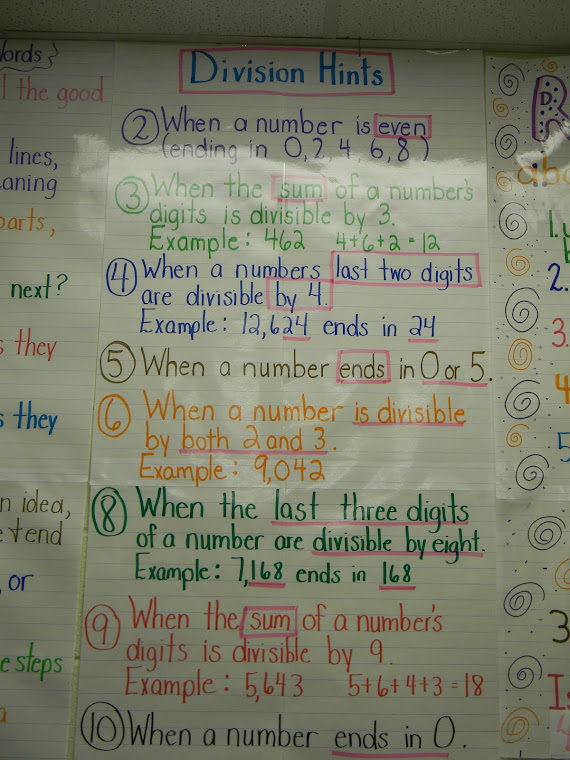 ords}
l the good
lines,
aning
parts,
next?
s they
s they
n idea,
etend
, or
e steps
a
Division Hints
② When a number is even
(ending in 0, 2, 4, 6, 8)
③ When the sum of a number's
digits is divisible by 3.
Example: 462 4+6+2=12
④ When a numbers last two digits
are divisible by 4.
Example: 12,624 ends in 24
⑤ When a number ends in 0 or 5.
⑥ When a number is divisible
by both 2 and 3.
Example: 9,042
⑧ When the last three digits
of a number are divisible by eight.
Example: 7,168 ends in 168
⑨ When the sum of a number's
digits is divisible by 9.
Example: 5,643 5+6+4+3=18
⑩ When a number ends in 0.
R
abo
1.
2.
3.
4
5
3